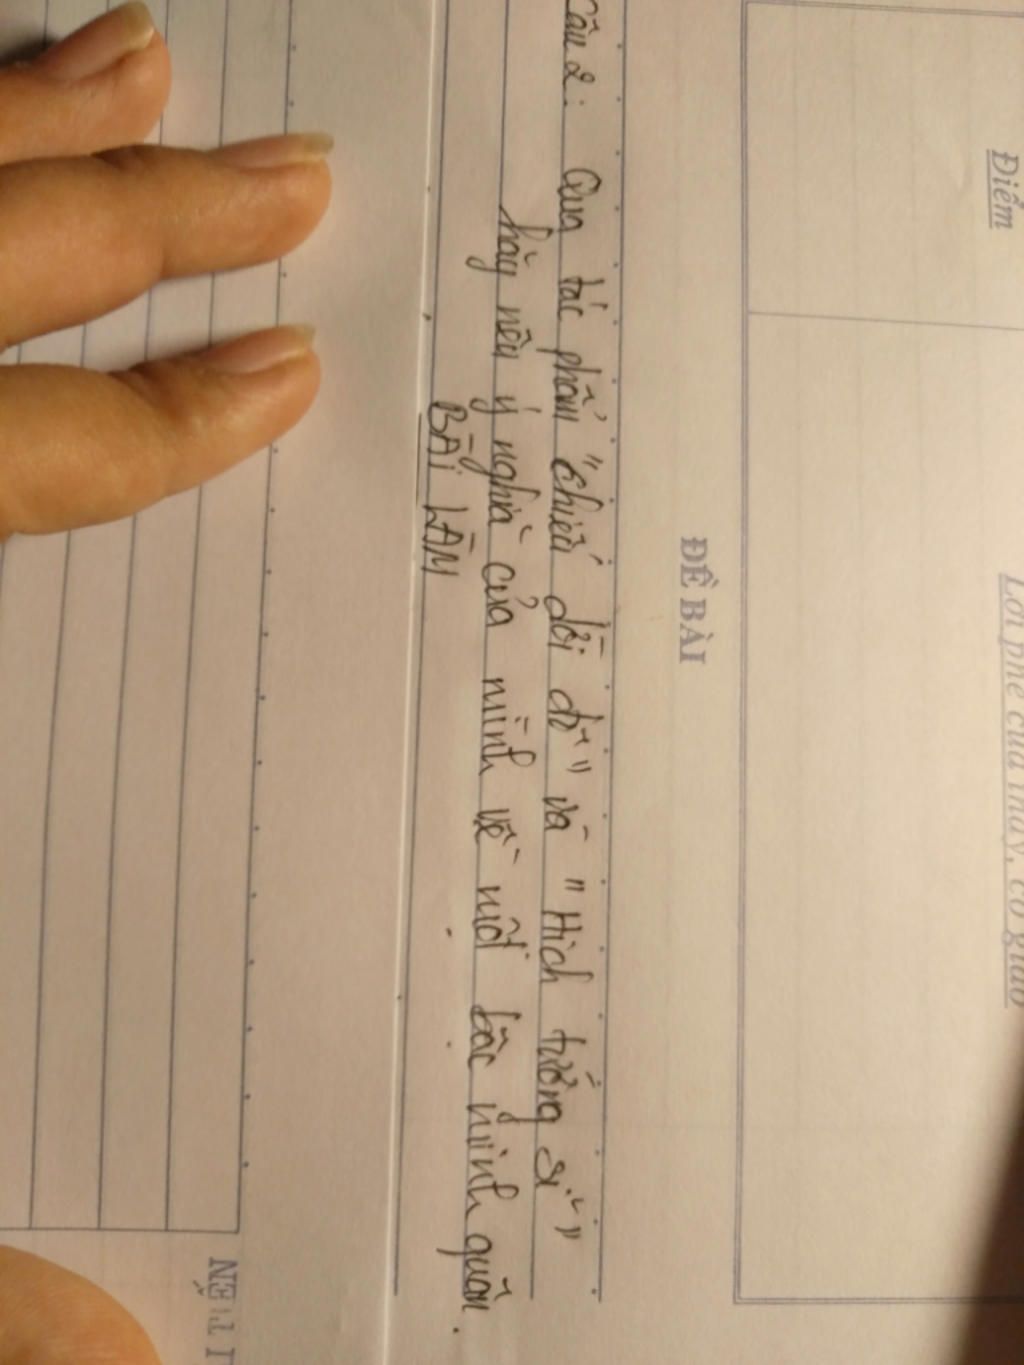 Điểm
Lời phê của thầy, cô giáo
ĐỀ BÀI
Câu 2: Qua tác phẩm "chiếu dời đô" và "Hịch tướng sĩ"
hãy nêu ý nghĩa của mình về một bậc minh quân.
BÀI LÀM